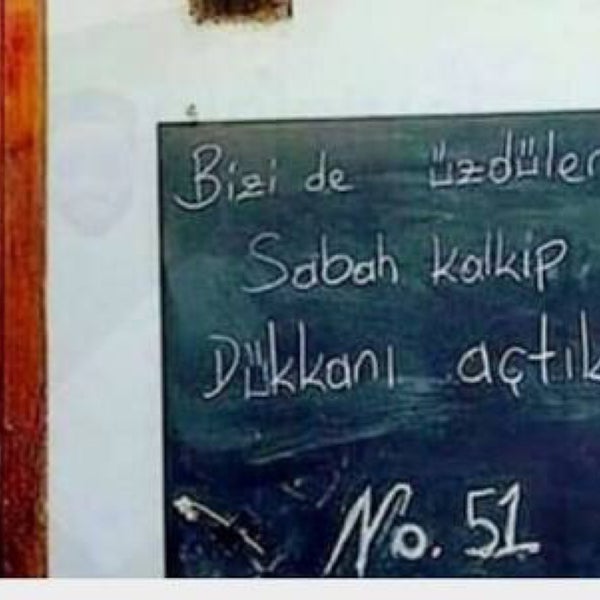 Bizi de üzdüler
Sabah kalkıp
Dükkanı açtık
No. 51